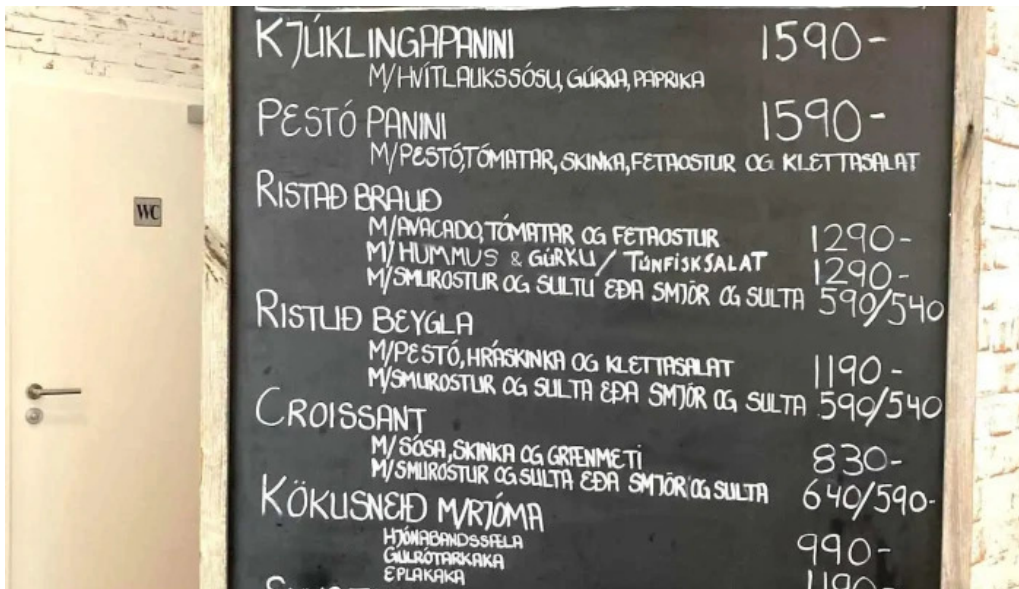 KJÚKLINGAPANINI 1590-
M/HVÍTLAUKSSÓSU, GÚRKA, PAPRIKA
PESTÓ PANINI 1590-
M/PESTÓ, TÓMATAR, SKINKA, FETAOSTUR OG KLETTASALAT
RISTAÐ BRAUÐ
M/AVACADO, TÓMATAR OG FETAOSTUR 1290-
M/HUMMUS & GÚRKU / TÚNFISKSALAT 1290-
M/SMUROSTUR OG SULTU EÐA SMJÖR OG SULTA 590/540
RISTUÐ BEYGLA
M/PESTÓ, HRÁSKINKA OG KLETTASALAT 1190-
M/SMUROSTUR OG SULTA EÐA SMJÖR OG SULTA 590/540
CROISSANT
M/SÓSA, SKINKA OG GRÆNMETI 830-
M/SMUROSTUR OG SULTA EÐA SMJÖR OG SULTA 640/590-
KÖKUSNEIÐ M/RJÓMA
HJÓNABANDSSÆLA 990-
GULRÓTARKAKA
EPLAKAKA
1190-
WC